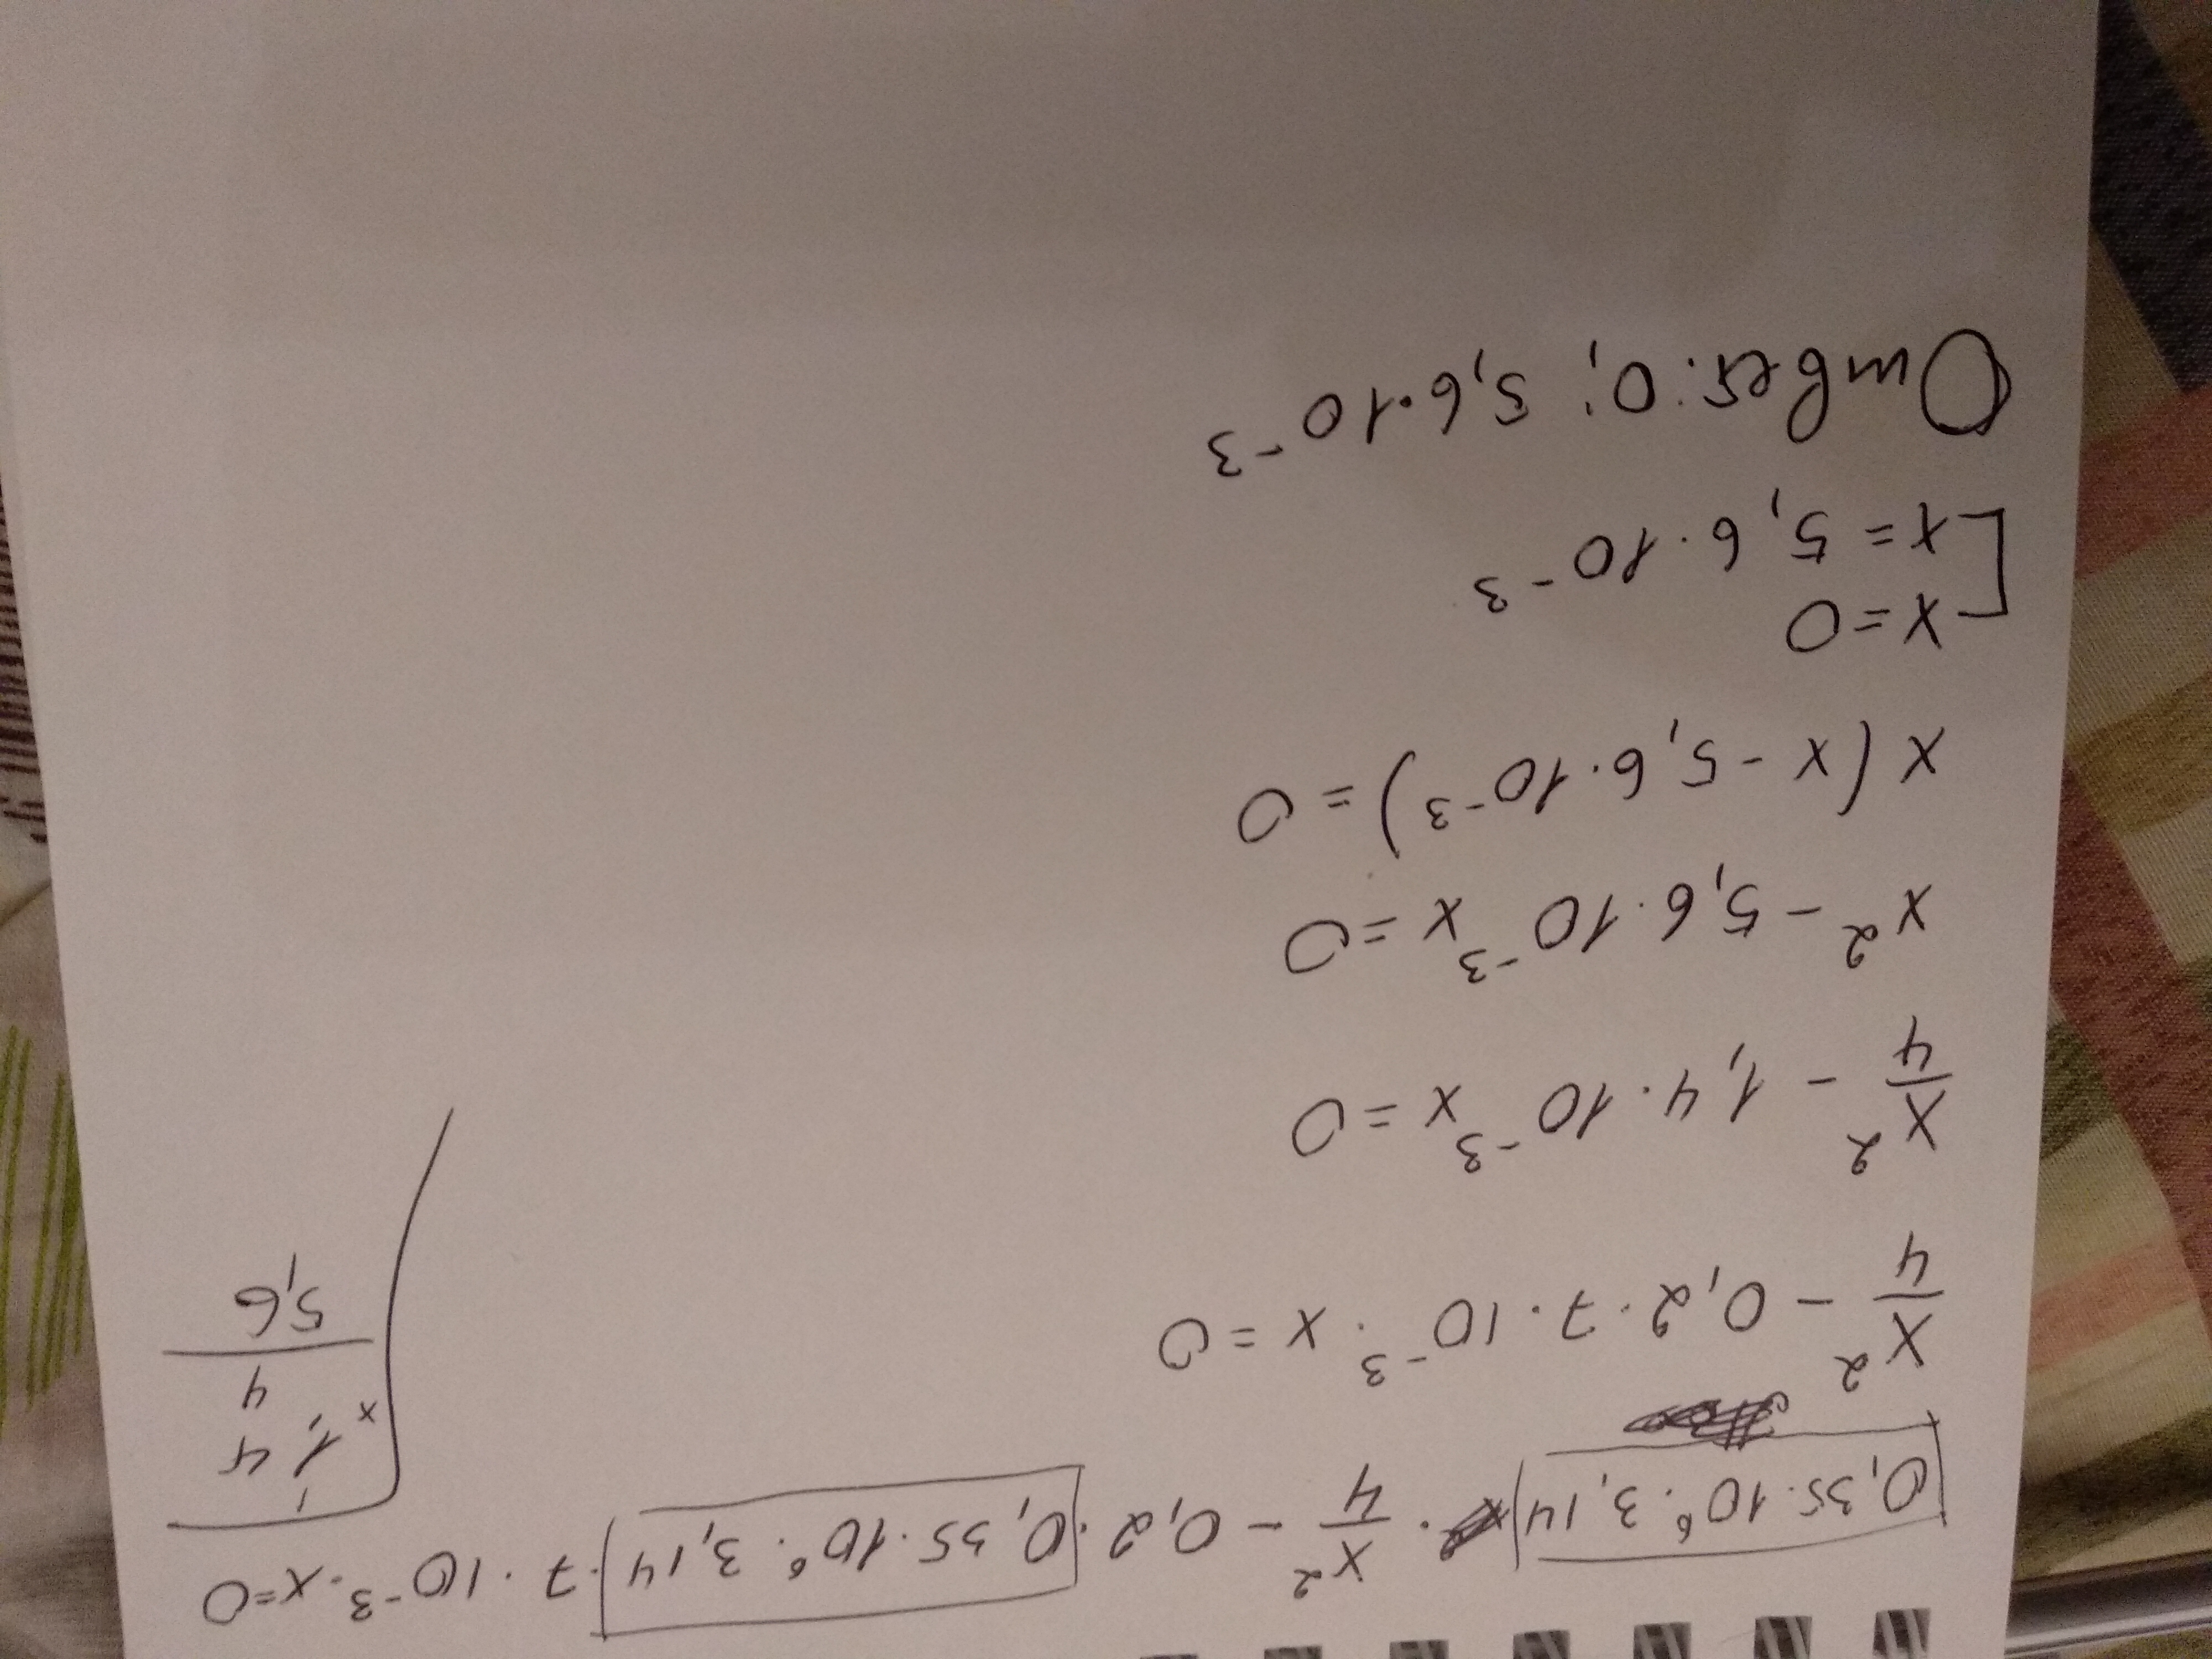 0,35·10⁶·3,14 · x²/4 - 0,2 · 0,35·10⁶·3,14 · 7·10⁻³·x=0
x²/4 - 0,2·7·10⁻³·x=0
x²/4 - 1,4·10⁻³x=0
x² - 5,6·10⁻³x=0
x(x-5,6·10⁻³)=0
[x=0
x=5,6·10⁻³
Ответ: 0; 5,6·10⁻³
1
1,4
x 4
5,6